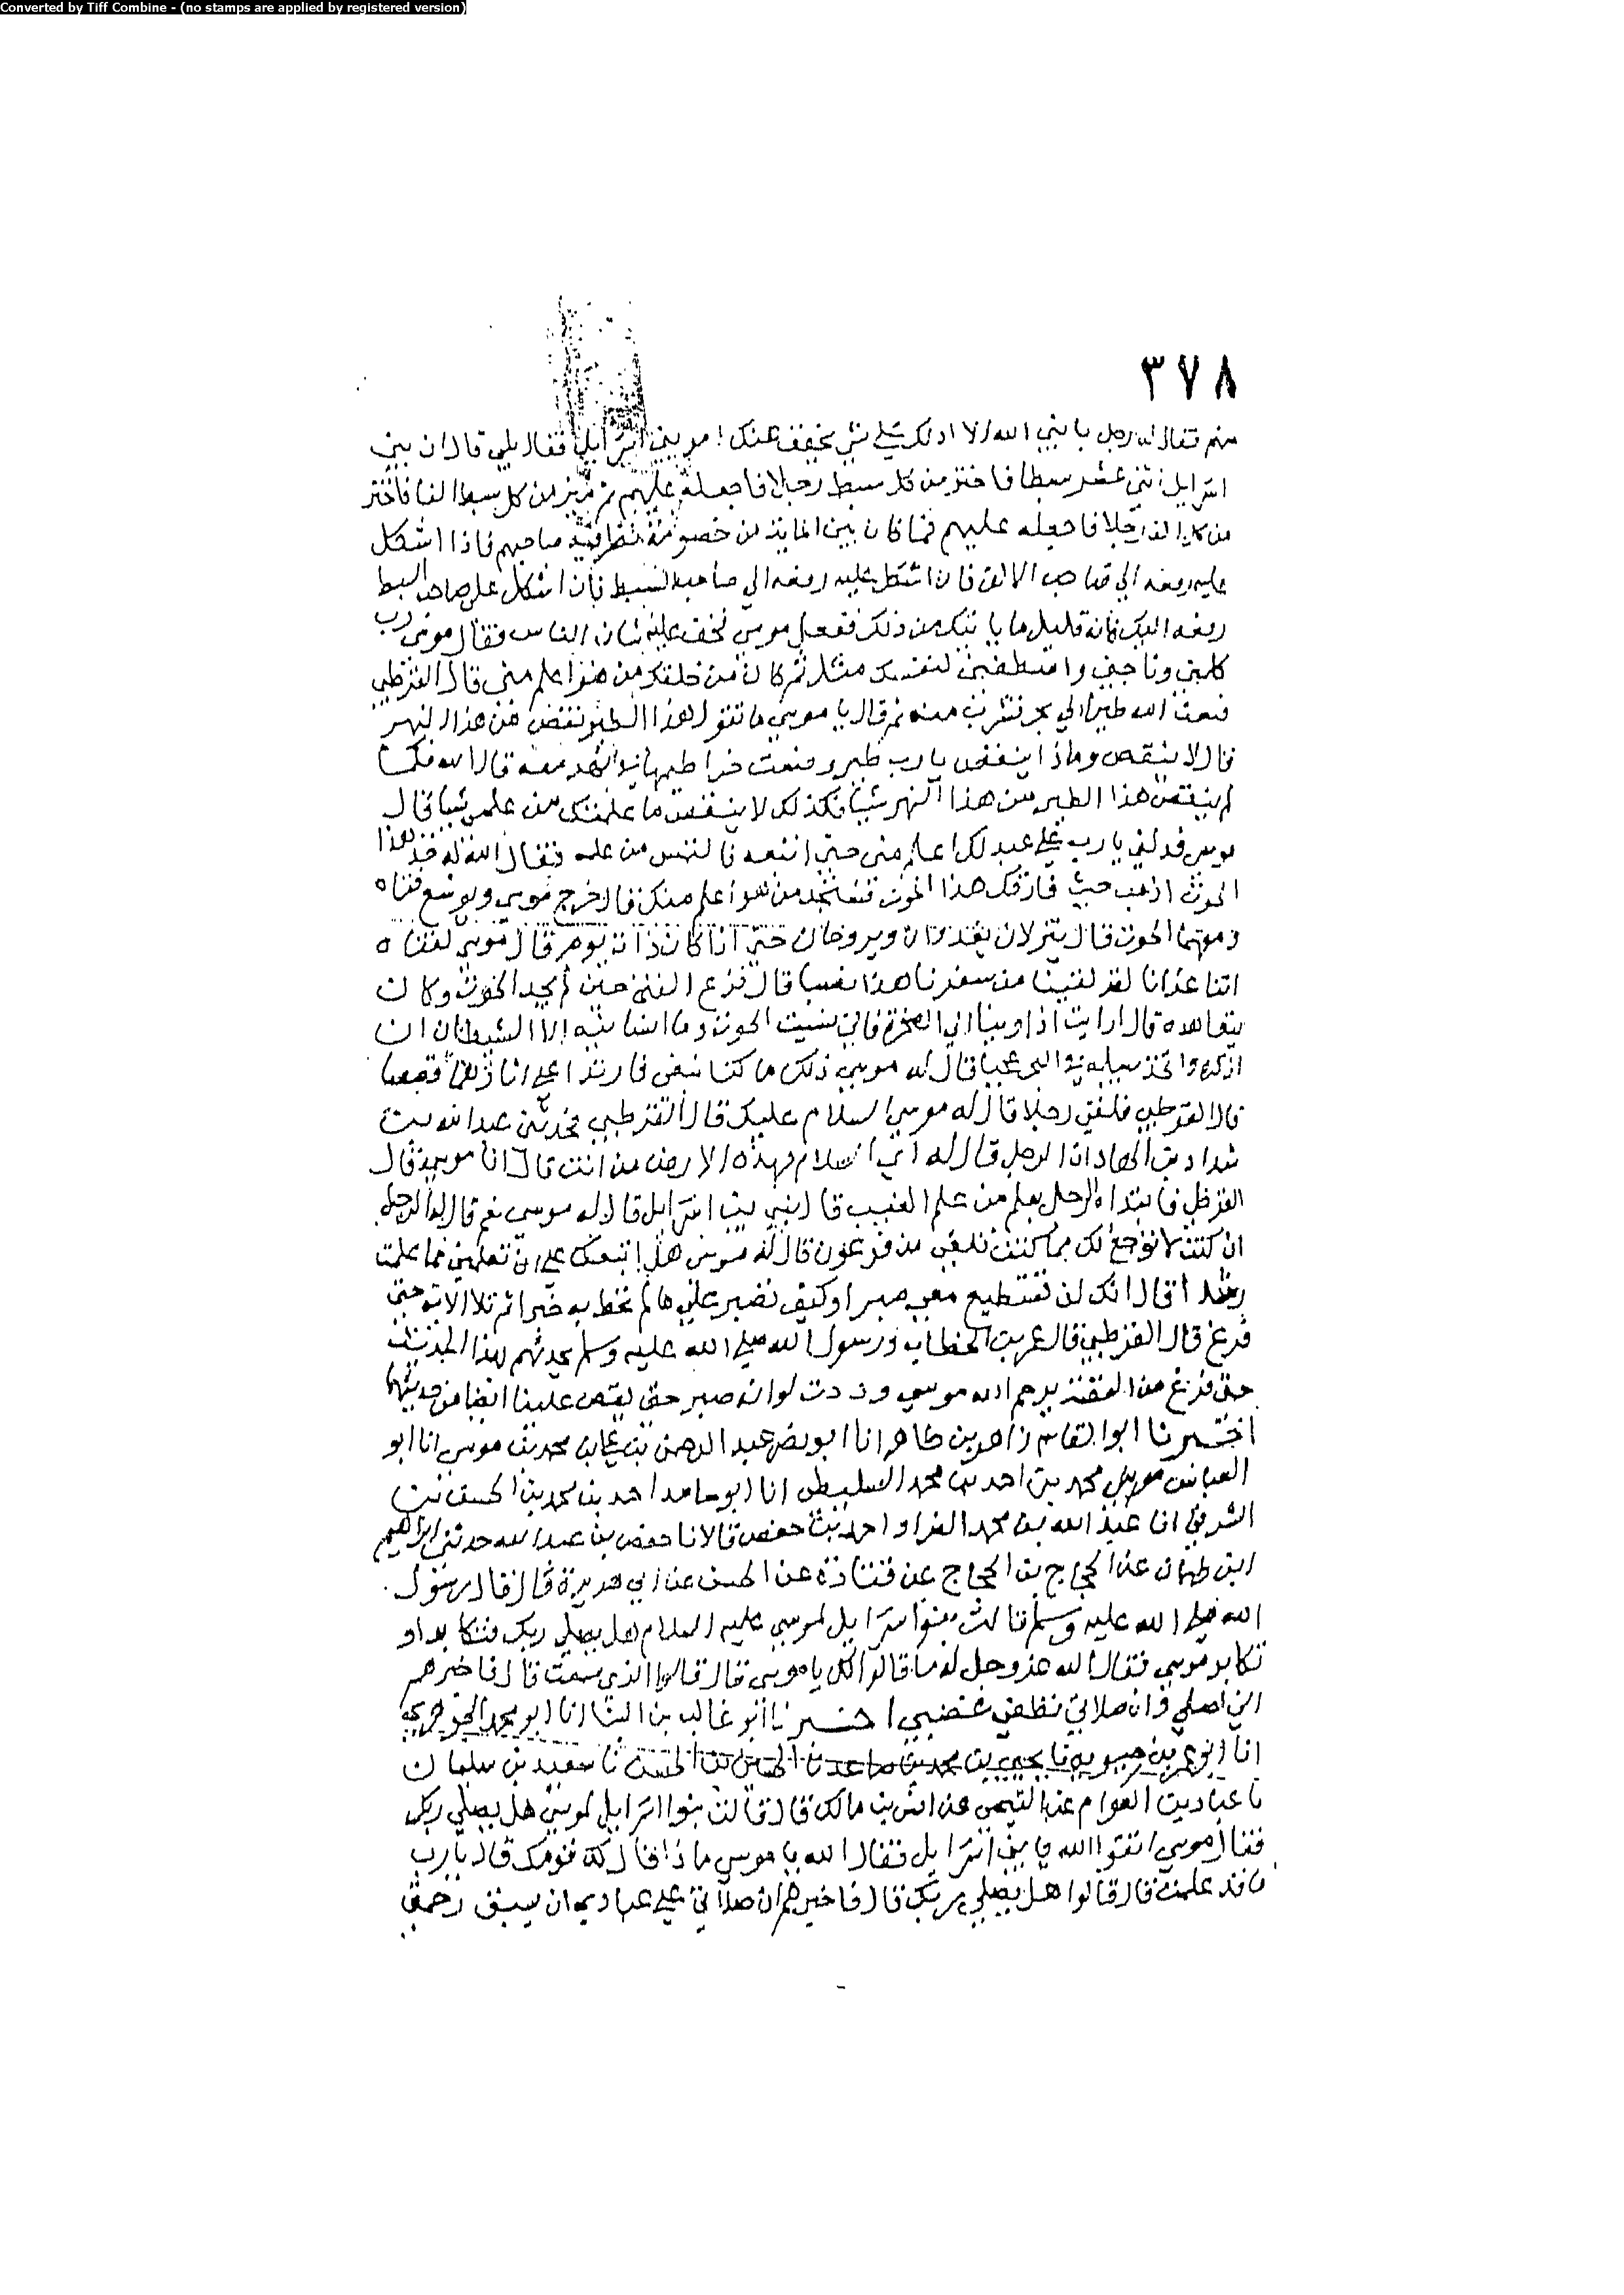 Converted by Tiff Combine - (no stamps are applied by registered version)
٣٧٨
منهم فقال له رجل يا نبي الله الا ادلك على شي يخفف عنك امر بني اسرايل فقال بلي قال ان بني
اسرايل اثني عشر سبطا فاختر من كل سبط رجلا فاجعله عليهم ثم ميز من كل سبط الفا فاختر
من كل الف رجلا فاجعله عليهم فما كان بين المايه من خصومة نظر فيه صاحبهم فاذا اشكل
عليه رفعه الي صاحب الالف فان اشكل عليه رفعه الي صاحب السبط فان اشكل علي صاحب السبط
رفعه اليك فانه قليل ما ياتيك من ذلك ففعل موسي فخف عليه شان الناس فقال موسى رب
كلمتني وناجيتني واصطفيتني لنفسك مثلا ثم كان من خلقك من هو اعلم مني قال القرظي
فبعث الله طيرا الي بحر فشرب منه ثم قال يا موسي ما تقول هذا الطير نقص من هذا النهر
قال لا ينقص وماذا ينقص يا رب طير وضعت خراطيمها في النهر معه قال الله فكما
لم ينقص هذا الطير من هذا النهر شيا فكذلك لا ينقص ما علمتك من علمي شيا قال
موسي فدلني يا رب علي عبد لك اعلم مني حتي اتبعه فالتمس من علمه فقال الله له خذ هذا
الحوت اذهب حيث فارقك هذا الحوت فستجد من هو اعلم منك قال فخرج موسي ويوشع فتاه
ومعهما الحوت قال ينزلان يغدوان ويروحان حتي اذا كان ذات يوم قال موسي لفتاه
اتنا غدانا لقد لقينا من سفرنا هذا نصبا قال فزع الفتى حين لم يجد الحوت وكان
يتعاهده قال ارايت اذ اوينا الي الصخرة فاني نسيت الحوت وما انسانيه الا الشيطان ان
اذكره واتخذ سبيله في البحر عجبا قال له موسي ذلك ما كنا نبغي فارتدا علي اثارهما قصصا
قال القرظي فلقي رجلا قال له موسي السلام عليك قال القرظي فحدثني عبد الله بن
شداد بن الهاد ان الرجل قال له اني السلام بهذه الارض من انت قال انا موسي قال
القرظي فابتداه الرجل بعلم من علم الغيب قال نبي بني اسرايل قال له موسي نعم قال له الرجل
ان كنت لا توجع لك بما كنت تلقي من فرعون قال له موسي هل اتبعك علي ان تعلمني مما علمت
رشدا قال انك لن تستطيع معي صبرا وكيف تصبر علي ما لم تحط به خبرا ثم تلا الاية حتي
فرغ قال القرظي قال عمر بن الخطاب ورسول الله صلي الله عليه وسلم يحدثهم بهذا الحديث
حتي فرغ من القصة يرحم الله موسي وددت لو انه صبر حتي يقص علينا ايضا من حديثهما
اخبرنا ابو القاسم زاهر بن طاهر انا ابو نصر عبد الرحمن بن علي بن محمد بن موسي انا ابو
العباس محمد بن احمد بن محمد السليطي انا ابو حامد احمد بن محمد بن الحسن بن
الشرقي انا عبد الله بن محمد الفرا و احمد بن حفص قالا نا حفص بن عبد الله حدثني ابراهيم
ابن طهمان عن الحجاج بن الحجاج عن قتادة عن الحسن عن ابي هريرة قال قال رسول
الله صلي الله عليه وسلم قالت بنوا اسرايل لموسي عليه السلام هل يصلي ربك فتكابد او
تكابر موسي فقال الله عز وجل له ما قالوا لك يا موسي قال قالوا الذي سمعت قال فاخبرهم
اني اصلي وان صلاتي تطفي غضبي اخبرنا ابو غالب بن البنا انا ابو محمد الجوهري
انا ابو عمر بن حيويه نا يحيي بن محمد بن صاعد نا الحسين بن الحسن نا سعيد بن سليمان
نا عباد بن العوام عن التيمي عن انس بن مالك قال قالت بنوا اسرايل لموسي هل يصلي ربك
فقال موسي اتقوا الله يا بني اسرايل فقال الله يا موسي ماذا قال لك قومك قال يا رب
ما قد علمت قال قالوا هل يصلي ربك قال فاخبرهم ان صلاتي علي عبادي ان سبق رحمتي